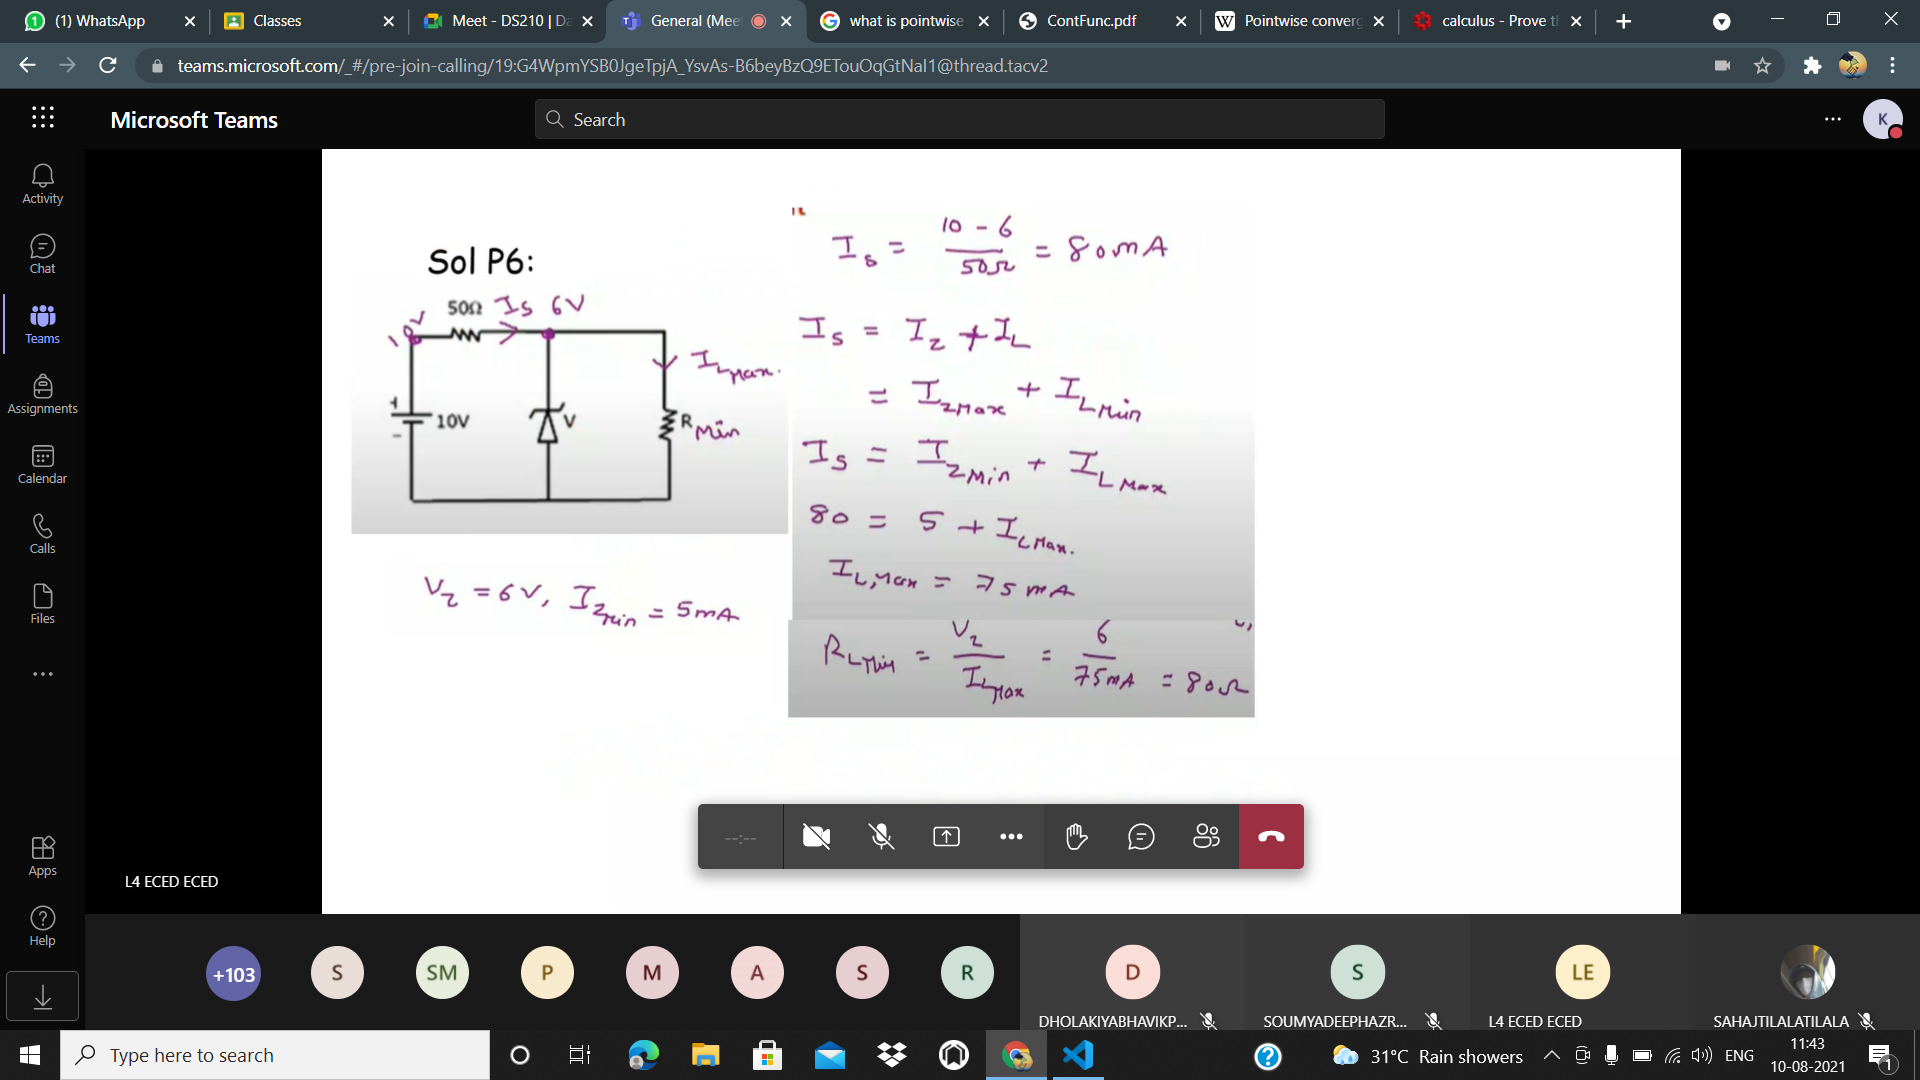 (1) WhatsApp
Classes
Meet - DS210 | Da
General (Mee
what is pointwise
ContFunc.pdf
Pointwise converg
calculus - Prove th
teams.microsoft.com/_#/pre-join-calling/19:G4WpmYSB0JgeTpjA_YsvAs-B6beyBzQ9ETouOqGtNaI1@thread.tacv2
Microsoft Teams
Search
K
Activity
Chat
Teams
Assignments
Calendar
Calls
Files
Apps
Help
Sol P6:
50Ω Is 6V
10V
I L Max.
+
10V
-
V
R Min
Vz = 6V, I z min = 5mA
Is = 10 - 6 / 50Ω = 80mA
Is = Iz + IL
= I z Max + I L Min
Is = I z Min + I L Max
80 = 5 + I L Max.
I L, Max = 75mA
R L Min = Vz / I L Max = 6 / 75mA = 80Ω
--:--
L4 ECED ECED
+103
S
SM
P
M
A
S
R
D
S
LE
DHOLAKIYABHAVIKP...
SOUMYADEEPHAZR...
L4 ECED ECED
SAHAJTILALATILALA
Type here to search
31°C Rain showers
ENG
11:43
10-08-2021
1